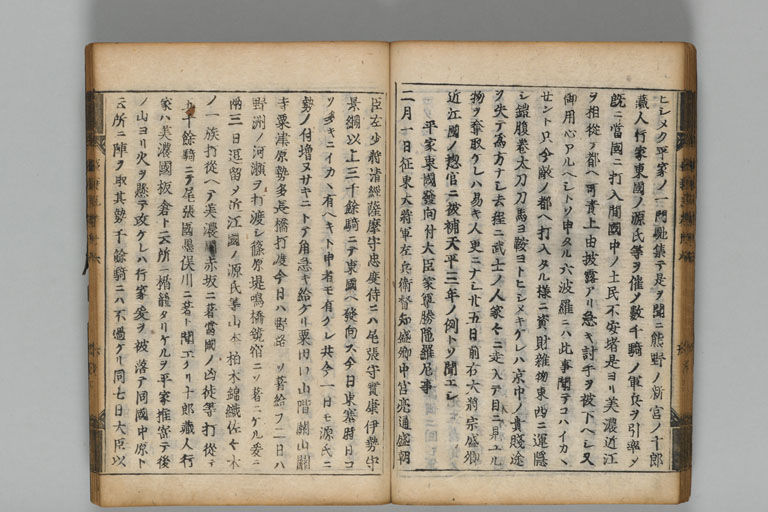 ヒシメク平家ノ一門馳集テ是ヲ聞ニ熊野ノ新宮ノ十郎
蔵人行家東國ノ源氏等ヲ催ノ数千騎ノ軍兵ヲ引率シ
既ニ當國ニ打入間國中ノ土民不安堵是ヨリ美濃近江
ヲ相從テ都ヘ可責上由披露アリ急キ討手ヲ被下ヘシ又
御用心アルヘシトソ申タル六波羅ニハ此事聞テコハイカヽ
セント只今敵ノ都ヘ打入タル様ニ資財雜物東西ニ運隠
シ鎧腹巻太刀刀馬ヨ鞍ヨトヒシメキケレハ京中ノ貴賤途
ヲ失テ為方ナシ去程ニ武士ノ人家ニ走入テ目ニ見ユル
物ヲ奪取ケレハ易キ人更ニナシ廿五日前右大將宗盛卿
近江國ノ惣官ニ被補天平三年ノ例トソ聞エシ
平家東國發向付大臣家軍勝陁羅尼事
二月一日征東大將軍左兵衛督知盛卿中宮亮通盛朝
臣左少將清經薩摩守忠度侍ニハ尾張守實康伊勢守
景綱以上三千餘騎ニテ東國ヘ發向ス今日東塞日コ
ソ多キニイカヽ有ヘキト申者モ有ケレ共今一日モ源氏ニ
勢ノ付増ヌサキニトテ角急キ給ケリ粟田口山階關山關
寺粟津原勢多長橋打渡今日ハ野路ニソ著給フ二日ハ
野洲ノ河瀬ヲ打渡シ篠原堤鳴橋鏡宿ニソ著ニケル爰ニ
兩三日逗留ソ近江國ノ源氏等山本柏木錦織佐々木
ノ一族打從ヘテ美濃國赤坂ニ著當國ノ凶徒等打從テ
五千餘騎ニテ尾張國墨俣川ニ著ト聞エケリ十郎蔵人行
家ハ美濃國板倉ト云所ニ楯籠タリケルヲ平家推寄テ後
ノ山ヨリ火ヲ懸テ攻ケレハ行家爰ヲ被落テ同國中原ト
云所ニ陣ヲ取其勢千餘騎ニハ不過ケリ同七日大臣以